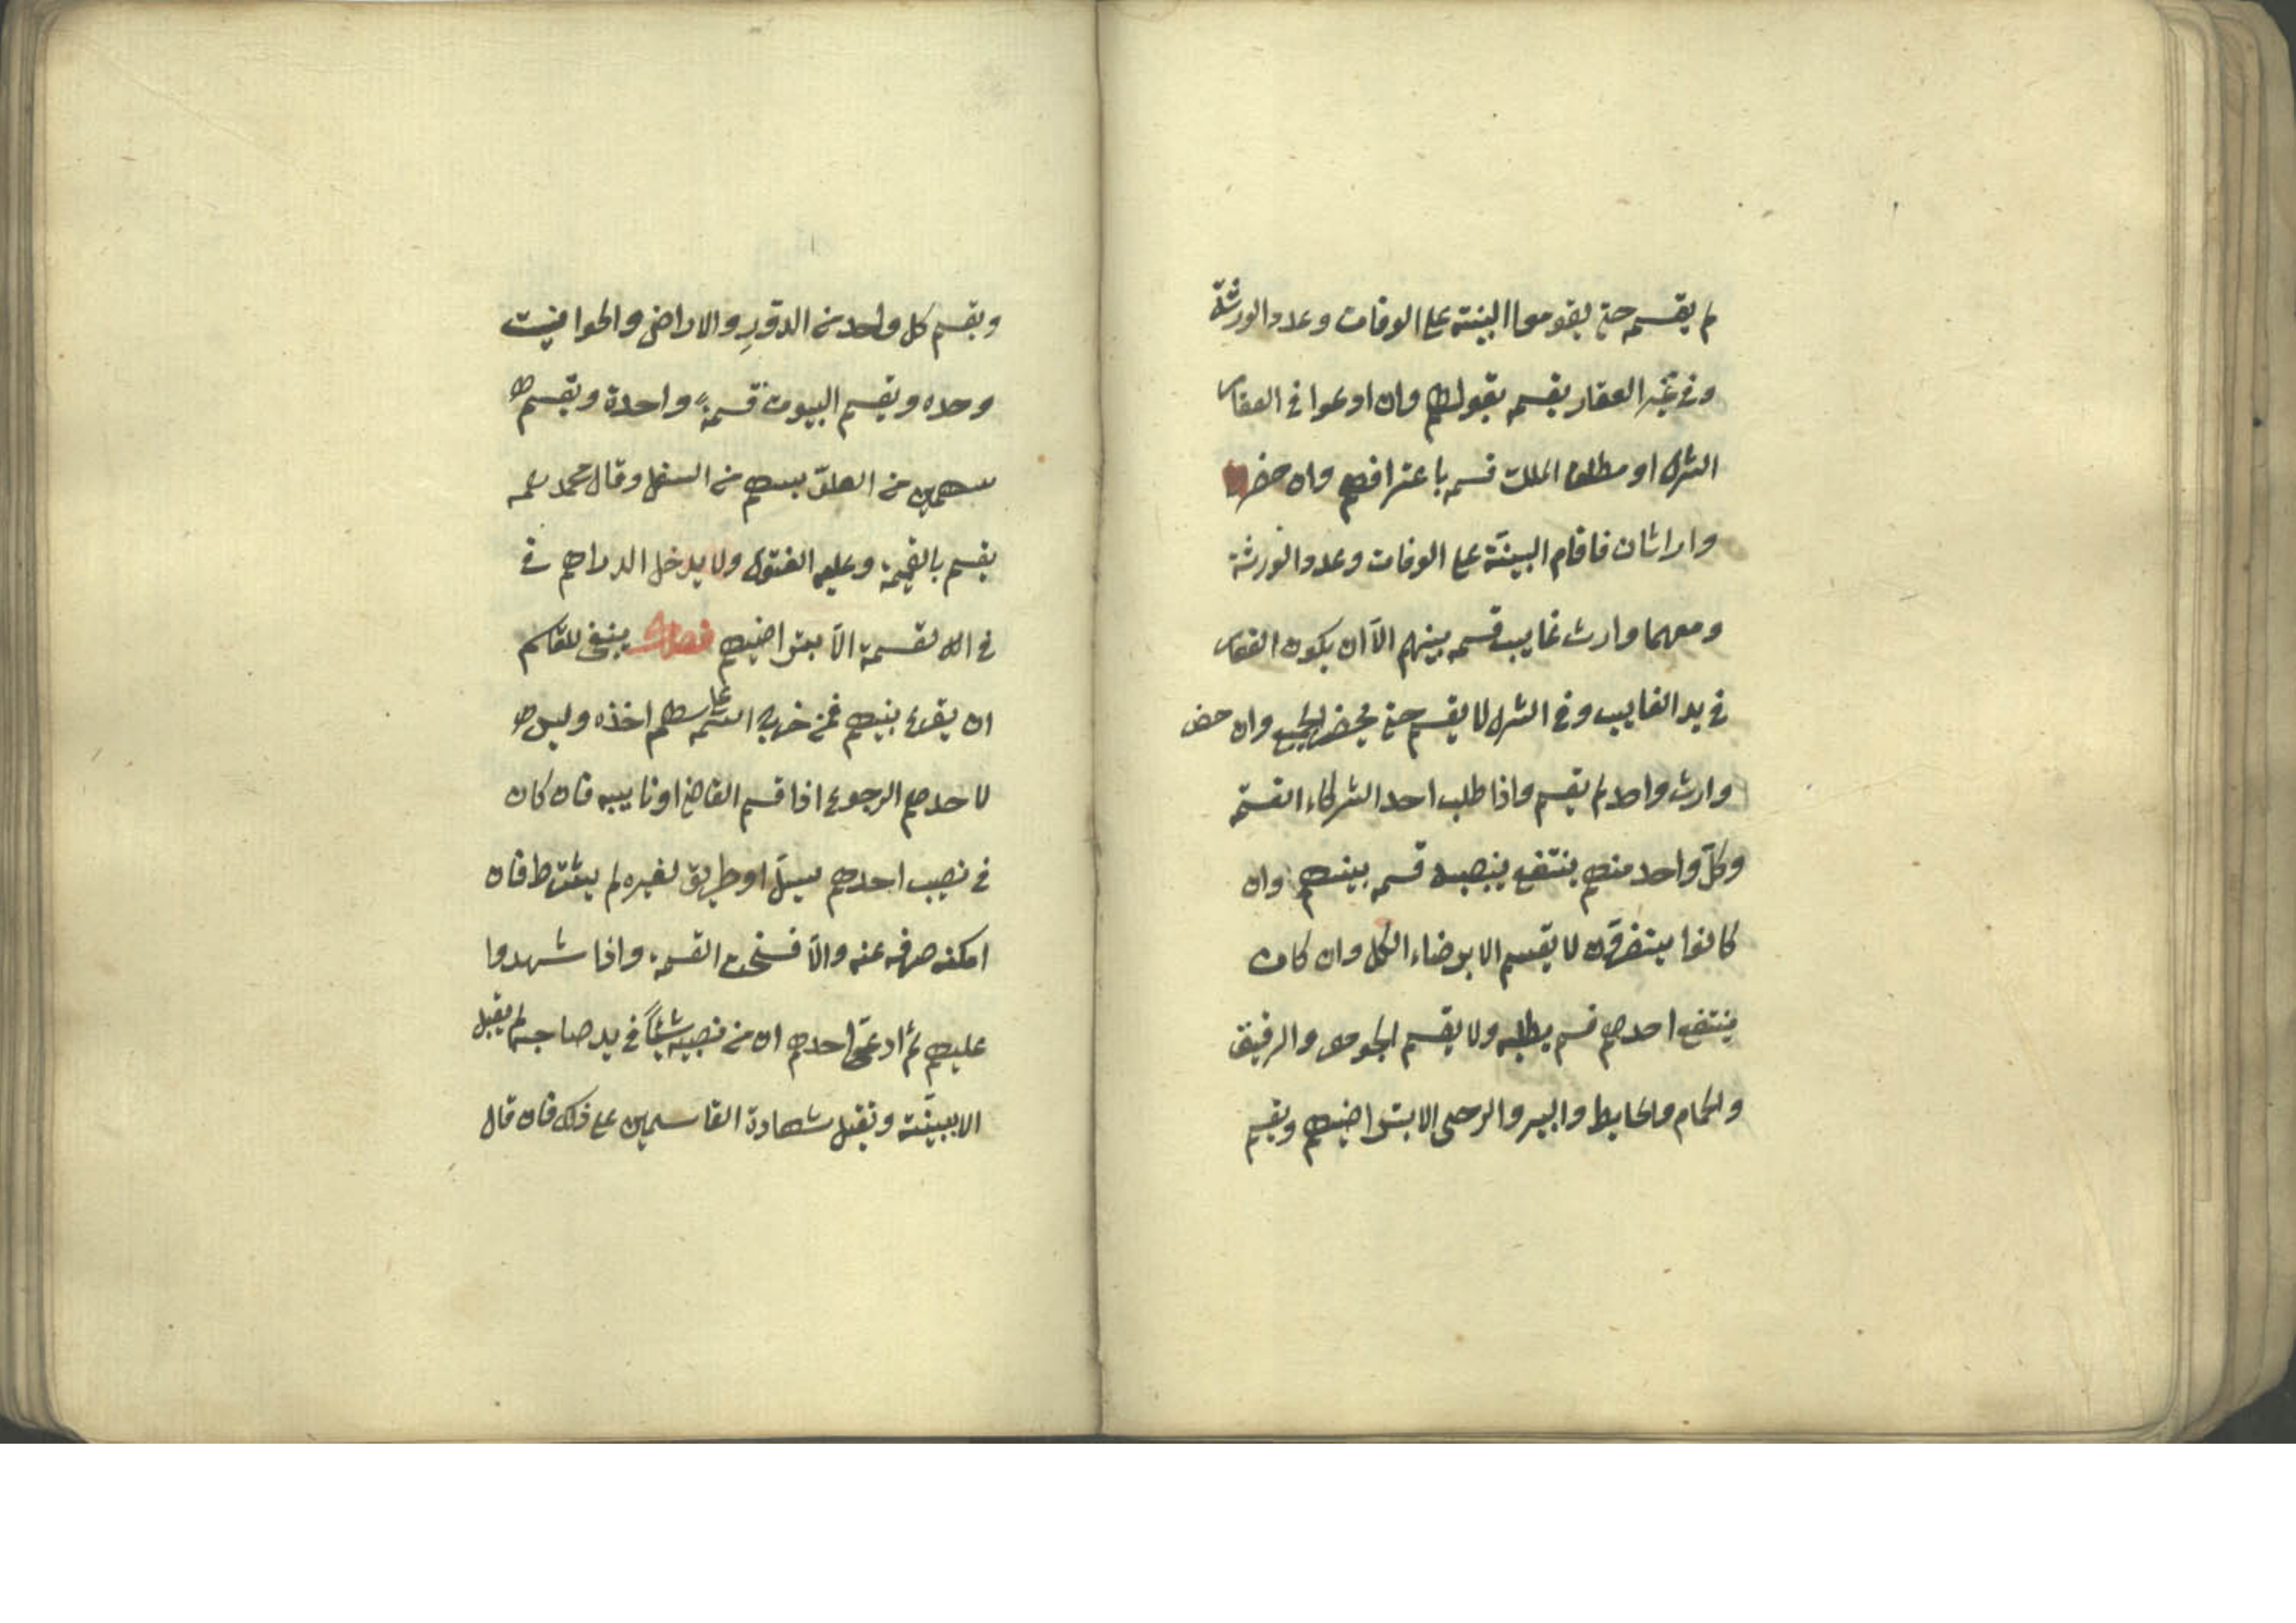 لم يقسمه حتى يقوموا البينة على الوفات وعدد الورثة
وفي غير العقار يقسمه بقولهم وان ادعوا في العقار
الشرا او مطلق الملك قسمه باعترافهم وان حضر
وارثان فاقام البينة على الوفات وعدد الورثة
ومعهما وارث غايب قسمه بينهم الا ان يكون العقار
في يد الغايب وفي الشرا لا يقسم حتى يحضر الجميع وان حضر
وارث واحد لم يقسم واذا طلب احد الشركاء القسمة
وكل واحد منهم ينتفع بنصيبه قسمه بينهم وان
كانوا يتضررون لا يقسم الا برضاء الكل وان كان
ينتفع احدهم قسم بطلبه ولا يقسم الجوهر والرقيق
والحمام والحايط والبير والرحى الا بتراضيهم ويقسم
ويقسم كل واحد من الدور والاراضي والحوانيت
وحده ويقسم البيوت قسمة واحدة ويقسم
سهمين من العلو بسهم من السفل وقال محمد
يقسم بالقيمة وعليه الفتوى ولا يدخل الدراهم في
في القسمة الا بتراضيهم فصل ينبغي للقاسم
ان يقرع بينهم فمن خرج اسمه على سهم اخذه وليس
لاحدهم الرجوع اذا قسم القاضي او نايبه فان كان
في نصيب احدهم مسيل او طريق لغيره لم يشترط فان
امكنه صرفه عنه والا فسخت القسمة واذا شهدوا
عليهم ثم ادعى احدهم ان من نصيبه شيئا في يد صاحبه لم يقبل
الا ببينة وتقبل شهادة القاسمين على ذلك فان قال